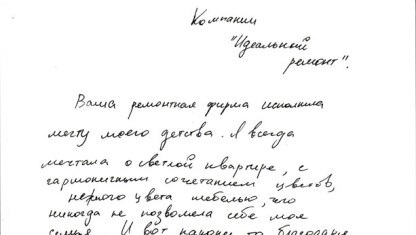 Компании
"Идеальный
ремонт".
Ваша ремонтная фирма исполнила
мечту моего детства. Я всегда
мечтала о светлой квартире, с
гармоничным сочетанием цветов,
нежного цвета мебелью, чего
никогда не позволяла себе моя
семья. И вот наконец то благодаря